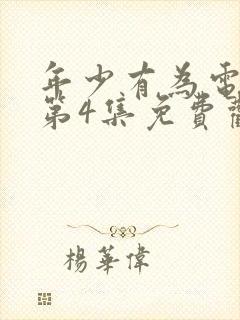 年少有為電
第4集免費
楊華偉